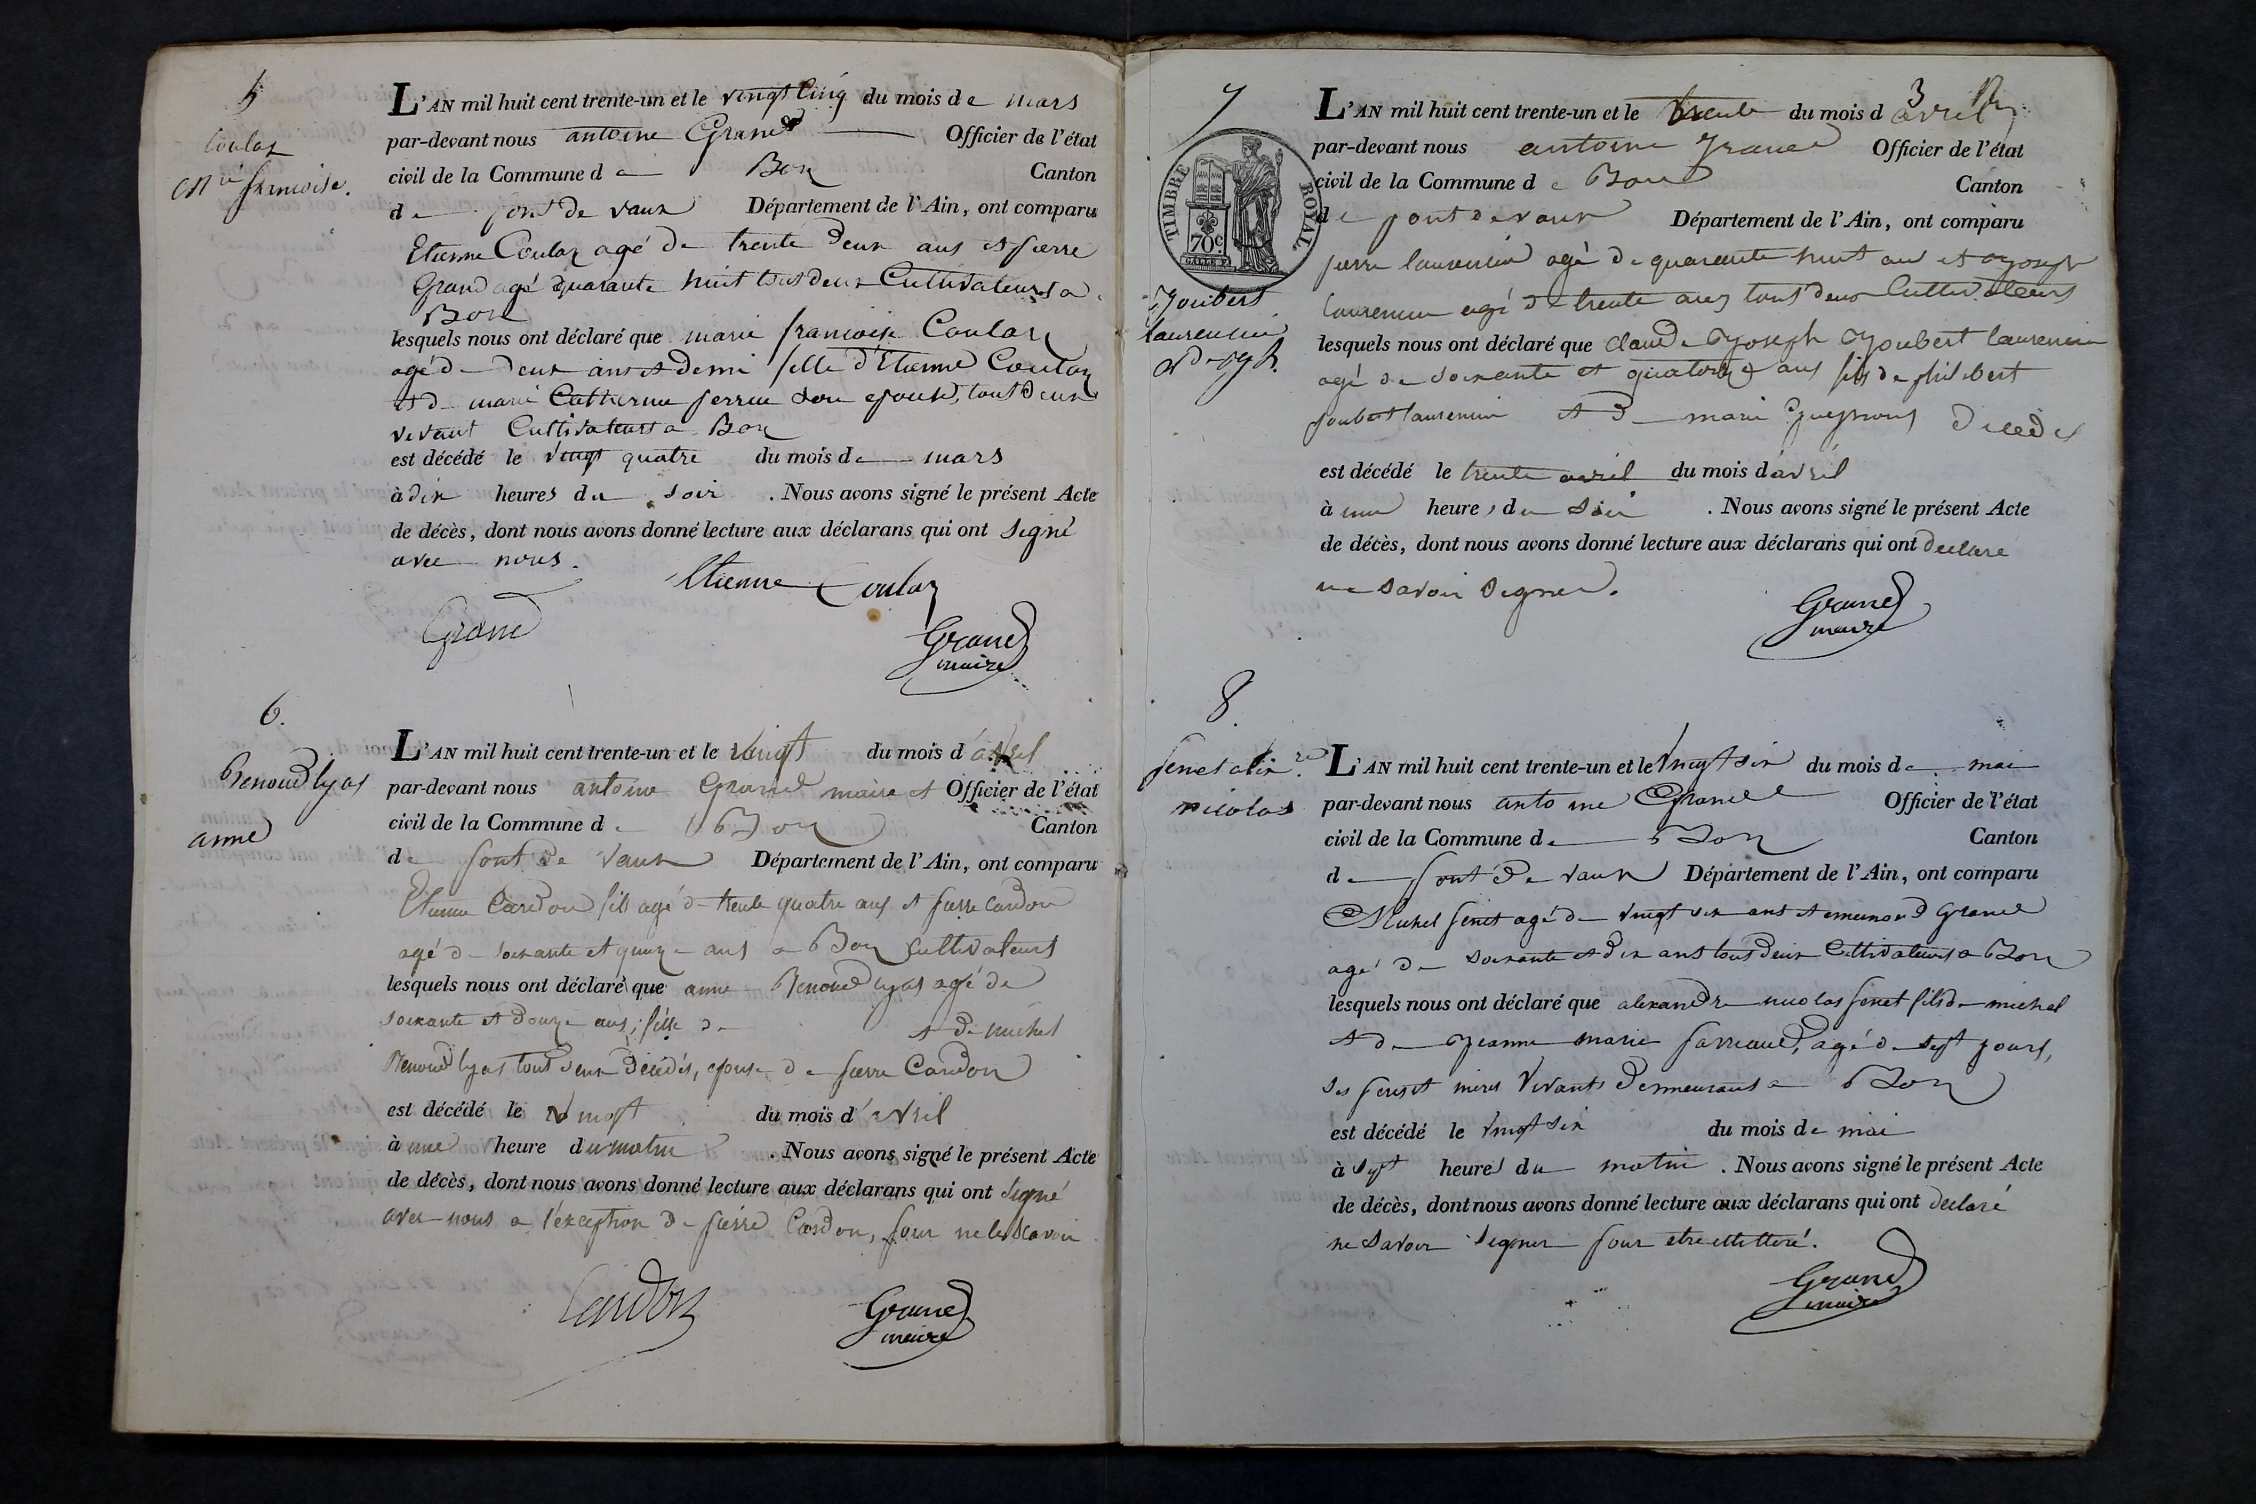 5
Coulas
Mie francoise.
L'AN mil huit cent trente-un et le vingt Cinq du mois de mars
par-devant nous antoine Grand Officier de l'état
civil de la Commune de Boz Canton
de pont de vaux Département de l'Ain, ont comparu
Etienne Coulaz agé de trente deux ans et pierre
Grand agé quarante huit tous deux Cultivateurs a
Boz
lesquels nous ont déclaré que marie francoise Coulaz
agé de deux ans et demi fille d'Etienne Coulaz
et de marie Catherine perrin son epouse, tout deux
vivant Cultivateurs a Boz
est décédé le vingt quatre du mois de mars
à dix heures du soir . Nous avons signé le présent Acte
de décès, dont nous avons donné lecture aux déclarans qui ont signé
avec nous.
Etienne Coulaz
Grand
Grand
maire
6.
Renoud lyas
anne
L'AN mil huit cent trente-un et le vingt du mois d'avril
par-devant nous antoine Grand maire et Officier de l'état
civil de la Commune de Boz Canton
de pont de vaux Département de l'Ain, ont comparu
Etienne Cardon fils agé de trente quatre ans et pierre Cardon
agé de soixante et quinze ans a Boz Cultivateurs
lesquels nous ont déclaré que anne Renoud lyas agé de
soixante et douze ans, fille de et de michel
Renoud lyas tout deux décédés, epouse de pierre Cardon
est décédé le vingt du mois d'avril
à une heure du matin . Nous avons signé le présent Acte
de décès, dont nous avons donné lecture aux déclarans qui ont signé
avec nous a l'exception de pierre Cardon, pour ne le scavoir
Cardon
Grand
maire
7
TIMBRE ROYAL
70c.
Joubert
laurencin
L'AN mil huit cent trente-un et le trente du mois d avril
par-devant nous antoine Grand Officier de l'état
civil de la Commune de Boz Canton
de pont de vaux Département de l'Ain, ont comparu
pierre laurencin agé de quarante huit ans et Joseph
laurencin agé de trente ans tous deux Cultivateurs
lesquels nous ont déclaré que claude Joseph Joubert laurencin
agé de soixante et quatorze ans fils de philibert
joubert laurencin et de marie décédés
est décédé le trente avril du mois d'avril
à une heure, du soir . Nous avons signé le présent Acte
de décès, dont nous avons donné lecture aux déclarans qui ont declaré
ne savoir signer.
Grand
maire
8.
fenet alix.re
nicolas
L'AN mil huit cent trente-un et le vingt six du mois de mai
par-devant nous antoine Grand Officier de l'état
civil de la Commune de Boz Canton
de pont de vaux Département de l'Ain, ont comparu
Michel fenet agé de vingt six ans et emmond Grand
agé de soixante et dix ans tous deux Cultivateurs a Boz
lesquels nous ont déclaré que alexandre nicolas fenet fils de michel
et de Jeanne marie parraud, agé de sept jours,
ses peres et meres vivants demeurant a Boz
est décédé le vingt six du mois de mai
à sept heures du matin . Nous avons signé le présent Acte
de décès, dont nous avons donné lecture aux déclarans qui ont declaré
ne savoir signer pour etre illitteré.
Grand
maire